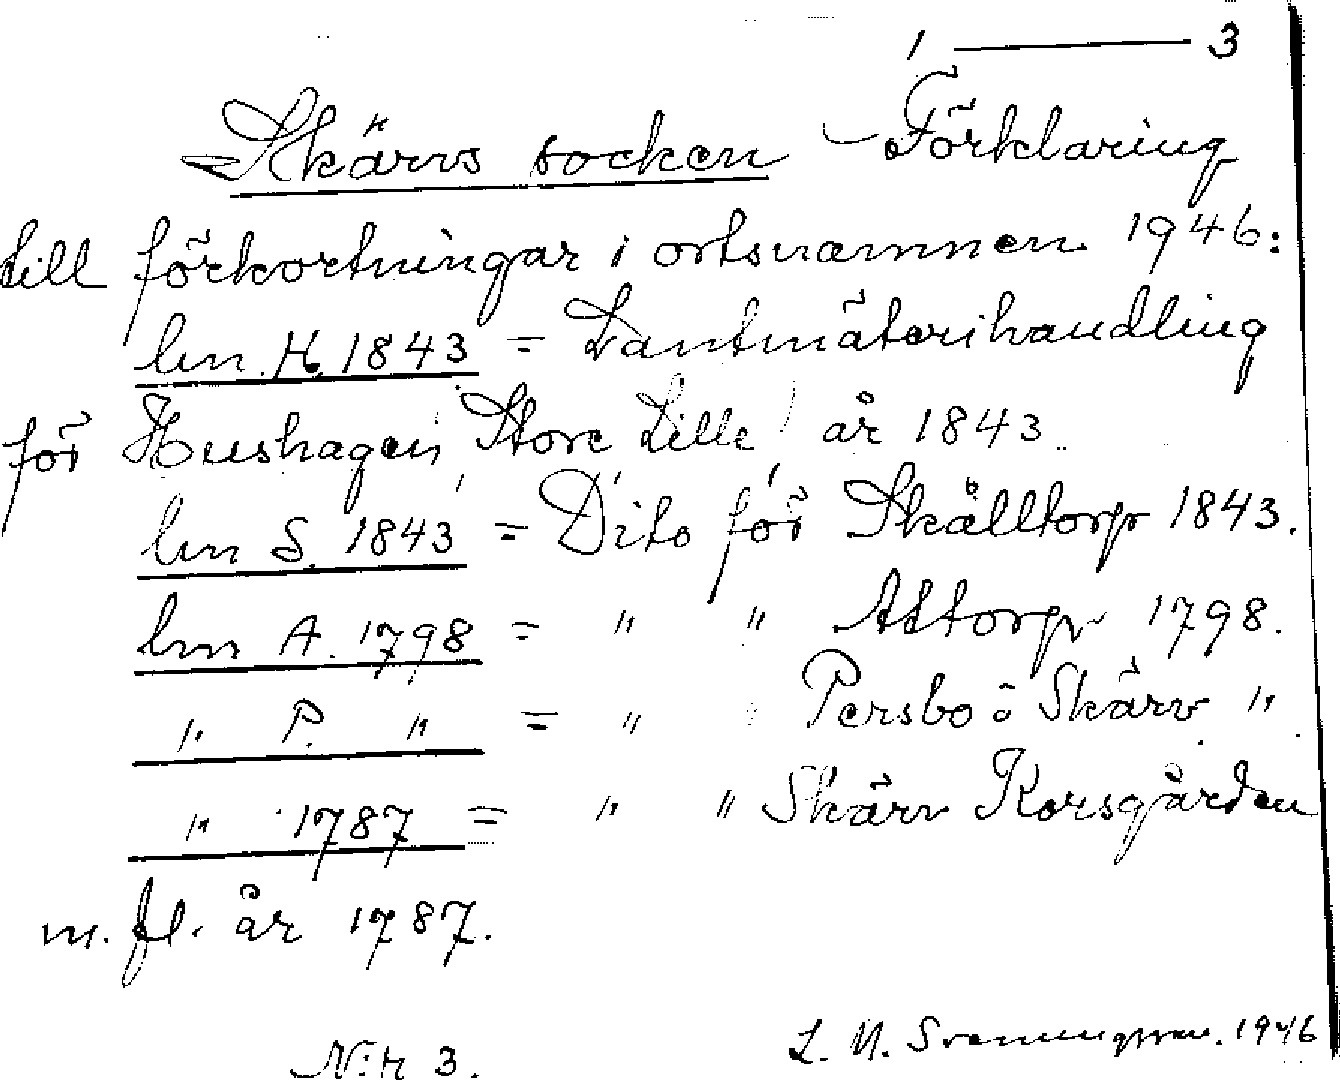 1 — 3
Skärvs socken – Förklaring
till förkortningar i ortsnamnen 1946:
lm. H. 1843 = Lantmäterihandling
för Hushagen, Store Lille, år 1843.
lm S. 1843 = Dito för Skålltorp 1843.
lm A. 1798 = " " Attorp 1798.
" P. " = " " Persbo i Skärv "
" 1787 = " " Skärv Korsgården
m. fl. år 1787.
N:r 3.
L. M. Svenungsson. 1946